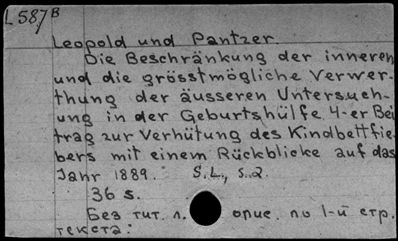 L 587 B
Leopold und Pantzer.
Die Beschränkung der inneren
und die grösstmögliche Verwer-
thung der äusseren Untersuch-
ung in der Geburtshülfe 4-er Bei
trag zur Verhütung des Kindbettfie-
bers mit einem Rückblicke auf das
Jahr 1889. S.L., s.a.
36 s.
Без тит. л. опис. по 1-й стр.
текста.